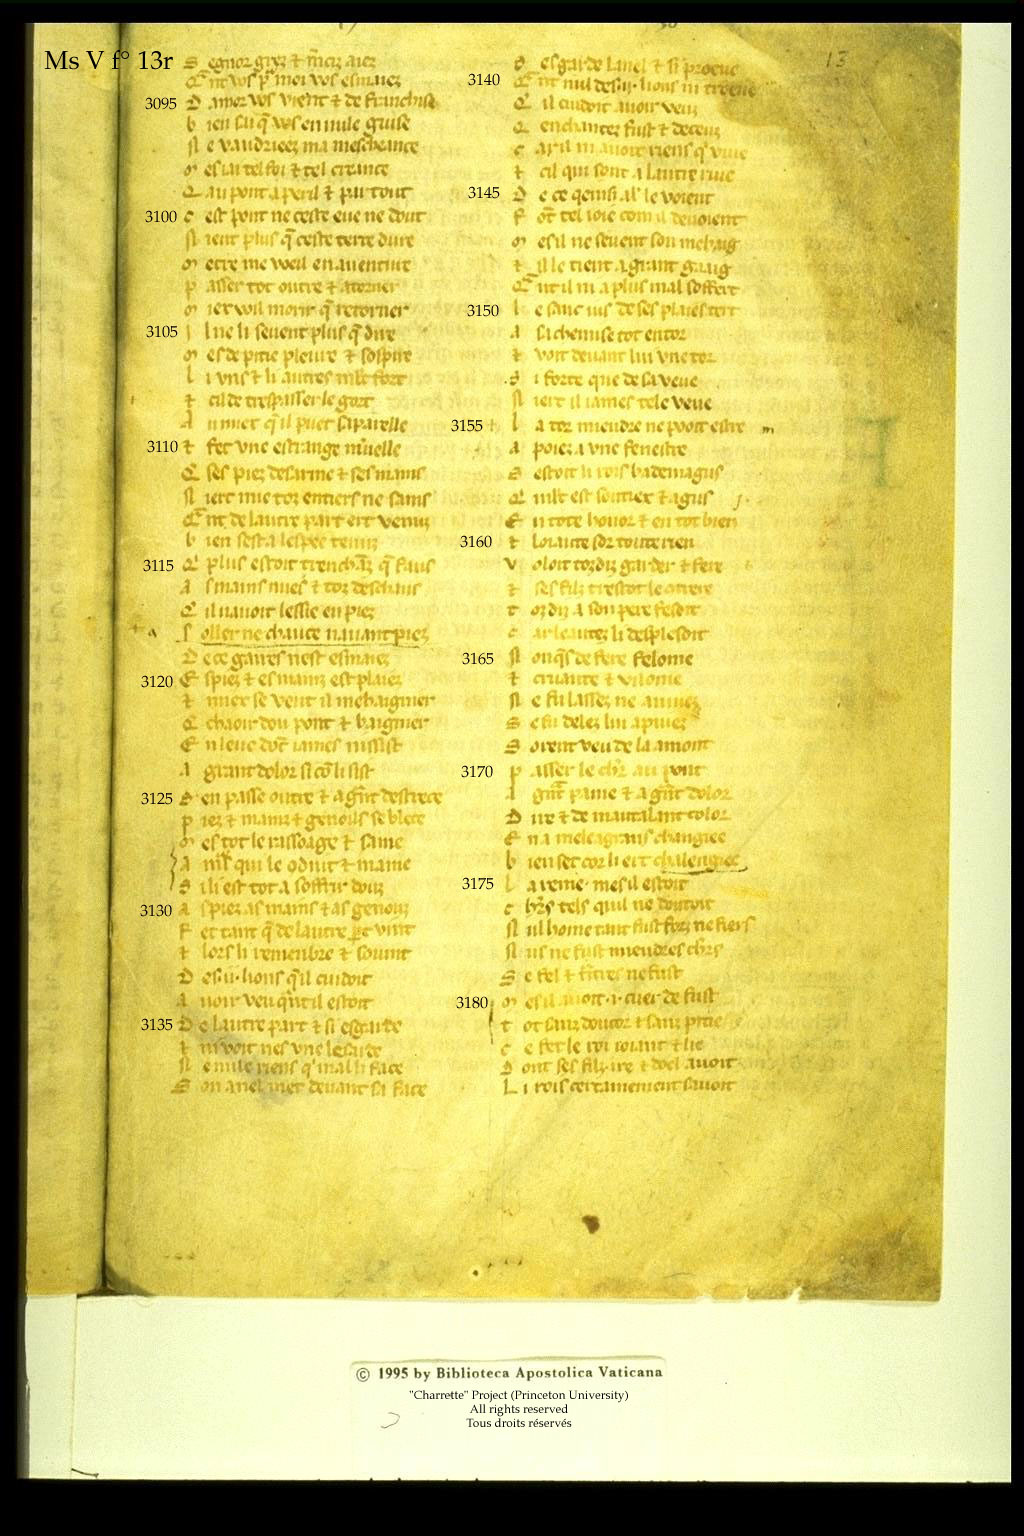 Ms V f° 13r
13
S egnor
Q nt vos moi vos esmaiez
3095 D amor vos vient & de franchise
b ien sai q̄ vos en nule guise
N e vaudriez ma mescheance
m es iai tel foi & tel creance
Q au pont a peril & par tout
3100 c est pont ne ceste eue ne dout
N ient plus q̄ ceste terre dure
m etre me voeil en auenture
p asser tot outre & atorner
m iex voil morir q̄ retorner
3105 I l ne li seuent plus q̄ dire
m es de pitie pleure & sospire
L i vns & li autres mlt fort
& cil de trespasser le gort
A u miex q̄ il puet saparelle
3110 & fet vne estrange
Q ses piez desarme & ses mains
N iert mie toz entiers ne sains
Q nt de lautre part ert venuz
b ien sest a lespee tenuz
3115 Q plus estoit trenchāz q̄ fauz
A s mains nues & toz deschauz
Q il nauoit lessie en piez
S oller ne chauce nauantpiez
D e ce gaires nest esmaiez
3120 spiez & es mainz est plaiez
& miex se veut il mehaignier
Q chaoir dou pont & baignier
E n leue dōt iames nissist
A grant dolor si cō li sist
3125 S en passe outre & a destrece
p iez & mainz & genouls se blece
m es tot le rassoage & sane
A mrs qui le conduit & maine
S ili est tot a soffrir douz
3130 a spiez as mains & as genouz
F et tant q̄ de lautre pt vint
& lors li remenbre & souint
D es .ii. lions q̄il cuidoit
A uoir veu qnt il estoit
3135 D e lautre part & si esgarde
& ni voit nes vne lesarde
N e nule riens q' mal li face
S on anel met deuant sa face
S esgarde lanel & si proeue
3140 Q nt nul des .ii. lions ni troeue
Q il cuidoit auoir veuz
Q enchantez fust & deceuz
c ar il ni auoit riens q' viue
& cil qui sont a lautre riue
3145 D e ce qensi le voient
F ōt tel ioie com il deuoient
m es il ne seuent son mehaig
& il le tient a grant gaaig
Q nt il ni a plus mal soffert
3150 L e sanc ius de ses plaies tert
A sa chemise tot entor
& voit deuant lui vne tor
S i forte que de sa veue
N iert il iames tele veue
3155 L a tor miendre ne pooit estre
A poiez a vne fenestre
S estoit li rois bademagus
Q mlt est soutiex & agus
E n tote honor & en tot bien
3160 & loiaute sor toute rien
V oloit tozdiz garder & fere
& ses filz trestot le
& ozdiz a son pere fesoit
c ar leautez li desplesoit
3165 N onqs de fere felonie
& cruaute & vilonie
N e fu lassez ne
S e fu delez lui apuiez
S orent veu de la amont
3170 p asser le chr au pont
A paine & a dolor
D ire & de mautalant color
E n a meleagrans changiee
b ien set cor li ert chalengiee
3175 L a reine mes il estoit
c hrs tels quil ne doutoit
N ul home tant fust forz ne fiers
N us ne fust miendres chrs
S e fel & ne fust
3180 m es il auoit .i. cuer de fust
& ot sanz doucor & sanz pitie
c e fet le roi ioiant & lie
D ont ses filz ire & doel auoit
L i rois certainement sauoit
© 1995 by Biblioteca Apostolica Vaticana
"Charrette" Project (Princeton University)
All rights reserved
Tous droits réservés